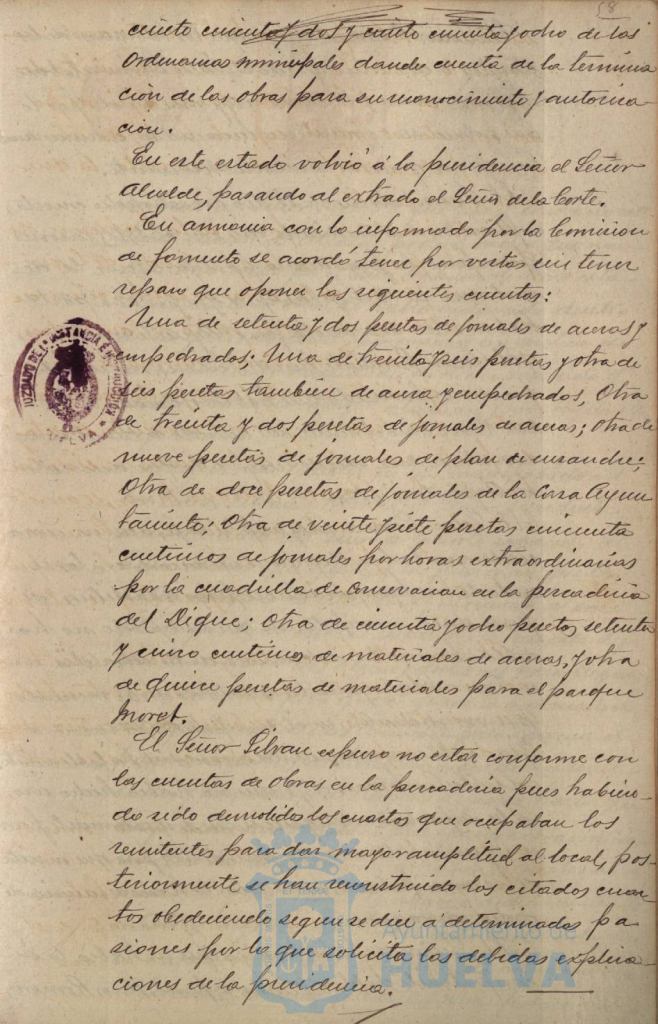 58
ciento cincuenta y dos y ciento cincuenta y ocho de las
Ordenanzas municipales dando cuenta de la termina
cion de las obras para su reconocimiento y autoriza
cion.
En este estado volvió á la presidencia el Señor
Alcalde, pasando al extrado el Señor de la Corte.
En armonia con lo informado por la Comision
de fomento se acordó tener por vistas sin tener
reparo que oponer las siguientes cuentas:
Una de setenta y dos pesetas de jornales de aceras y
empedrados; Una de treinta y seis pesetas y otra de
seis pesetas tambien de acera y empedrados, Otra
de treinta y dos pesetas de jornales de aceras; otra de
nueve pesetas de jornales de plan de ensanche;
Otra de doce pesetas de jornales de la Casa Ayun
tamiento; Otra de veinte y siete pesetas cincuenta
centimos de jornales por horas extraordinarias
por la cuadrilla de conservacion en la pescaderia
del Dique; Otra de cincuenta y ocho pesetas setenta
y cinco centimos de materiales de aceras, y otra
de quince pesetas de materiales para el parque
Moret.
El Señor Silvan expuso no estar conforme con
las cuentas de obras en la pescaderia pues habien-
do sido demolidos los cuartos que ocupaban los
remitentes para dar mayor amplitud al local, pos-
teriormente se han reconstruido los citados cuar-
tos obedeciendo segun se dice á determinadas pa
siones por lo que solicita las debidas explica-
ciones de la presidencia.
JUZGADO DE 1ª INSTANCIA É INSTRUCCION
HUELVA
Ayuntamiento de
HUELVA